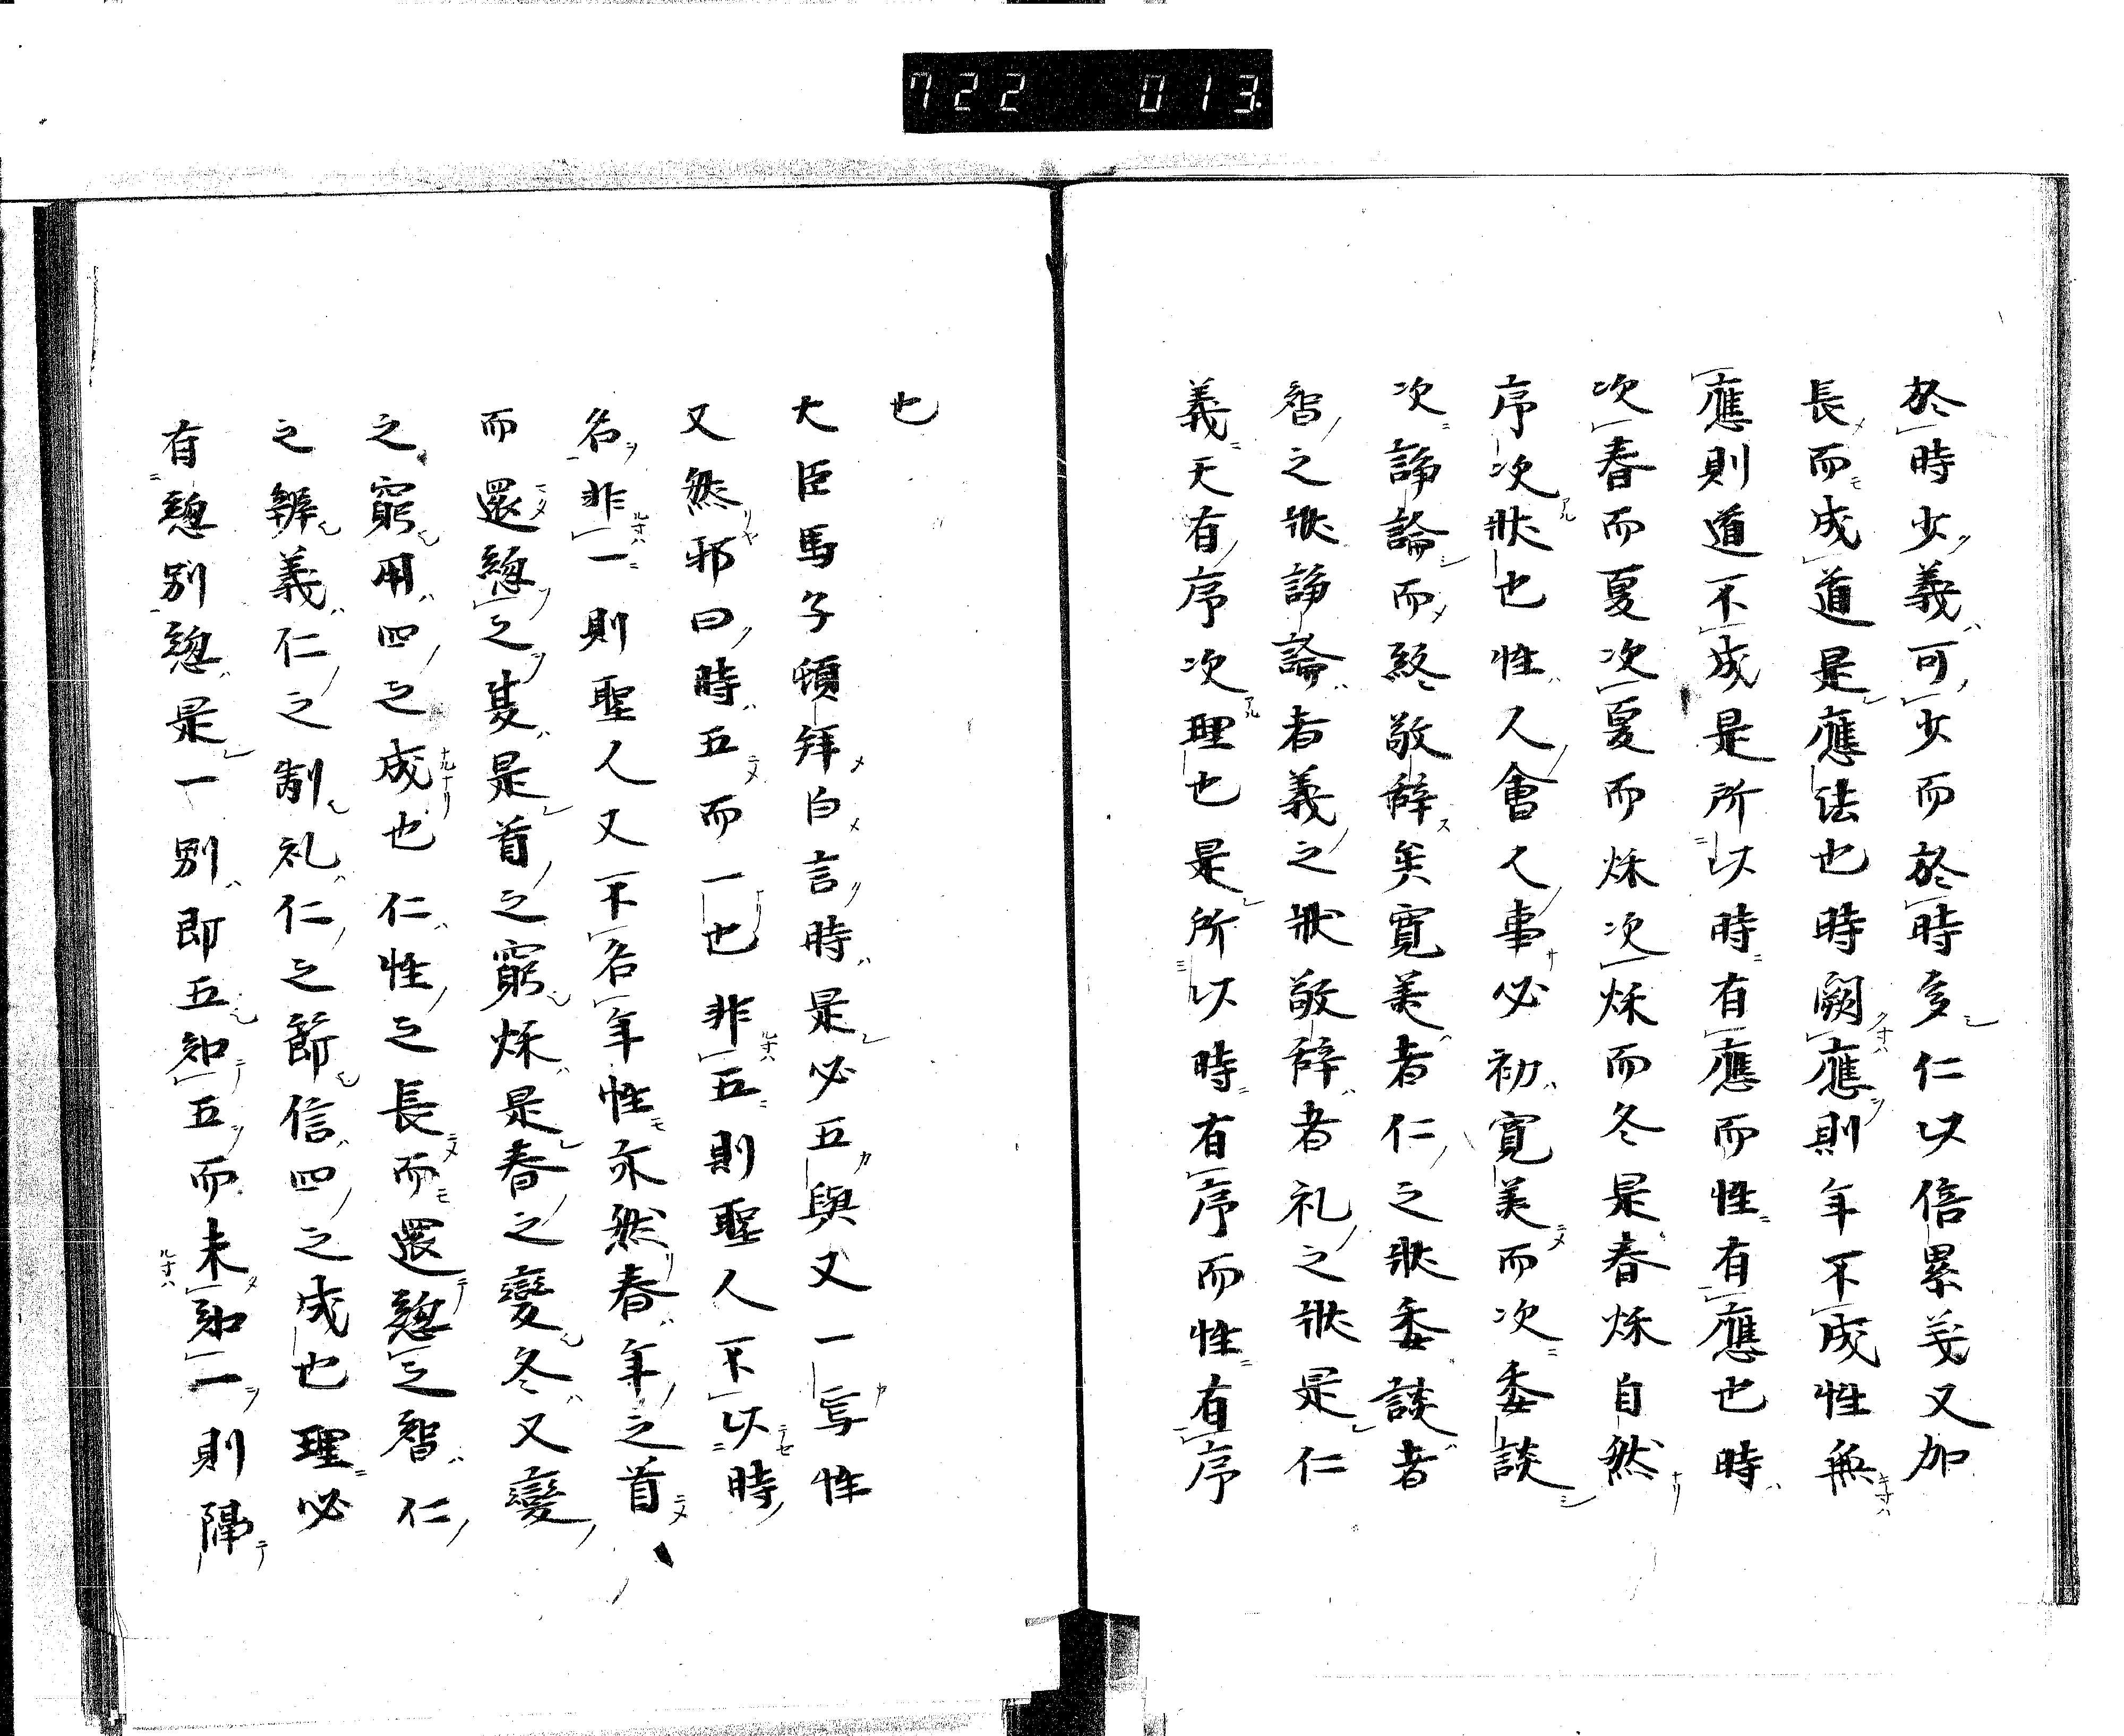 722 013
於時少義可少而於時多仁以倍累義又加
長而成道是應法也時闕應則年不成性無
應則道不成是所以時有應而性有應也時
次春而夏次夏而烁次烁而冬是春烁自然
序次狀也性人會人事必初寛美而次委談
次諍論而終敬辞矣寛美者仁之狀委談者
智之狀諍論者義之狀敬辞者礼之狀是仁
義天有序次理也是所以時有序而性有序
也
大臣馬子頓拜白言時是必五與又一乎性
又然邪曰時五而一也非五則聖人不以時
名非一則聖人又不名年性亦然春年之首
而還緫之夏是首之窮烁是春之變冬又變
之窮用四之成也仁性之長而還緫之智仁
之辨義仁之制礼仁之節信四之成也理必
有緫別緫是一別即五知五而未知一則歸